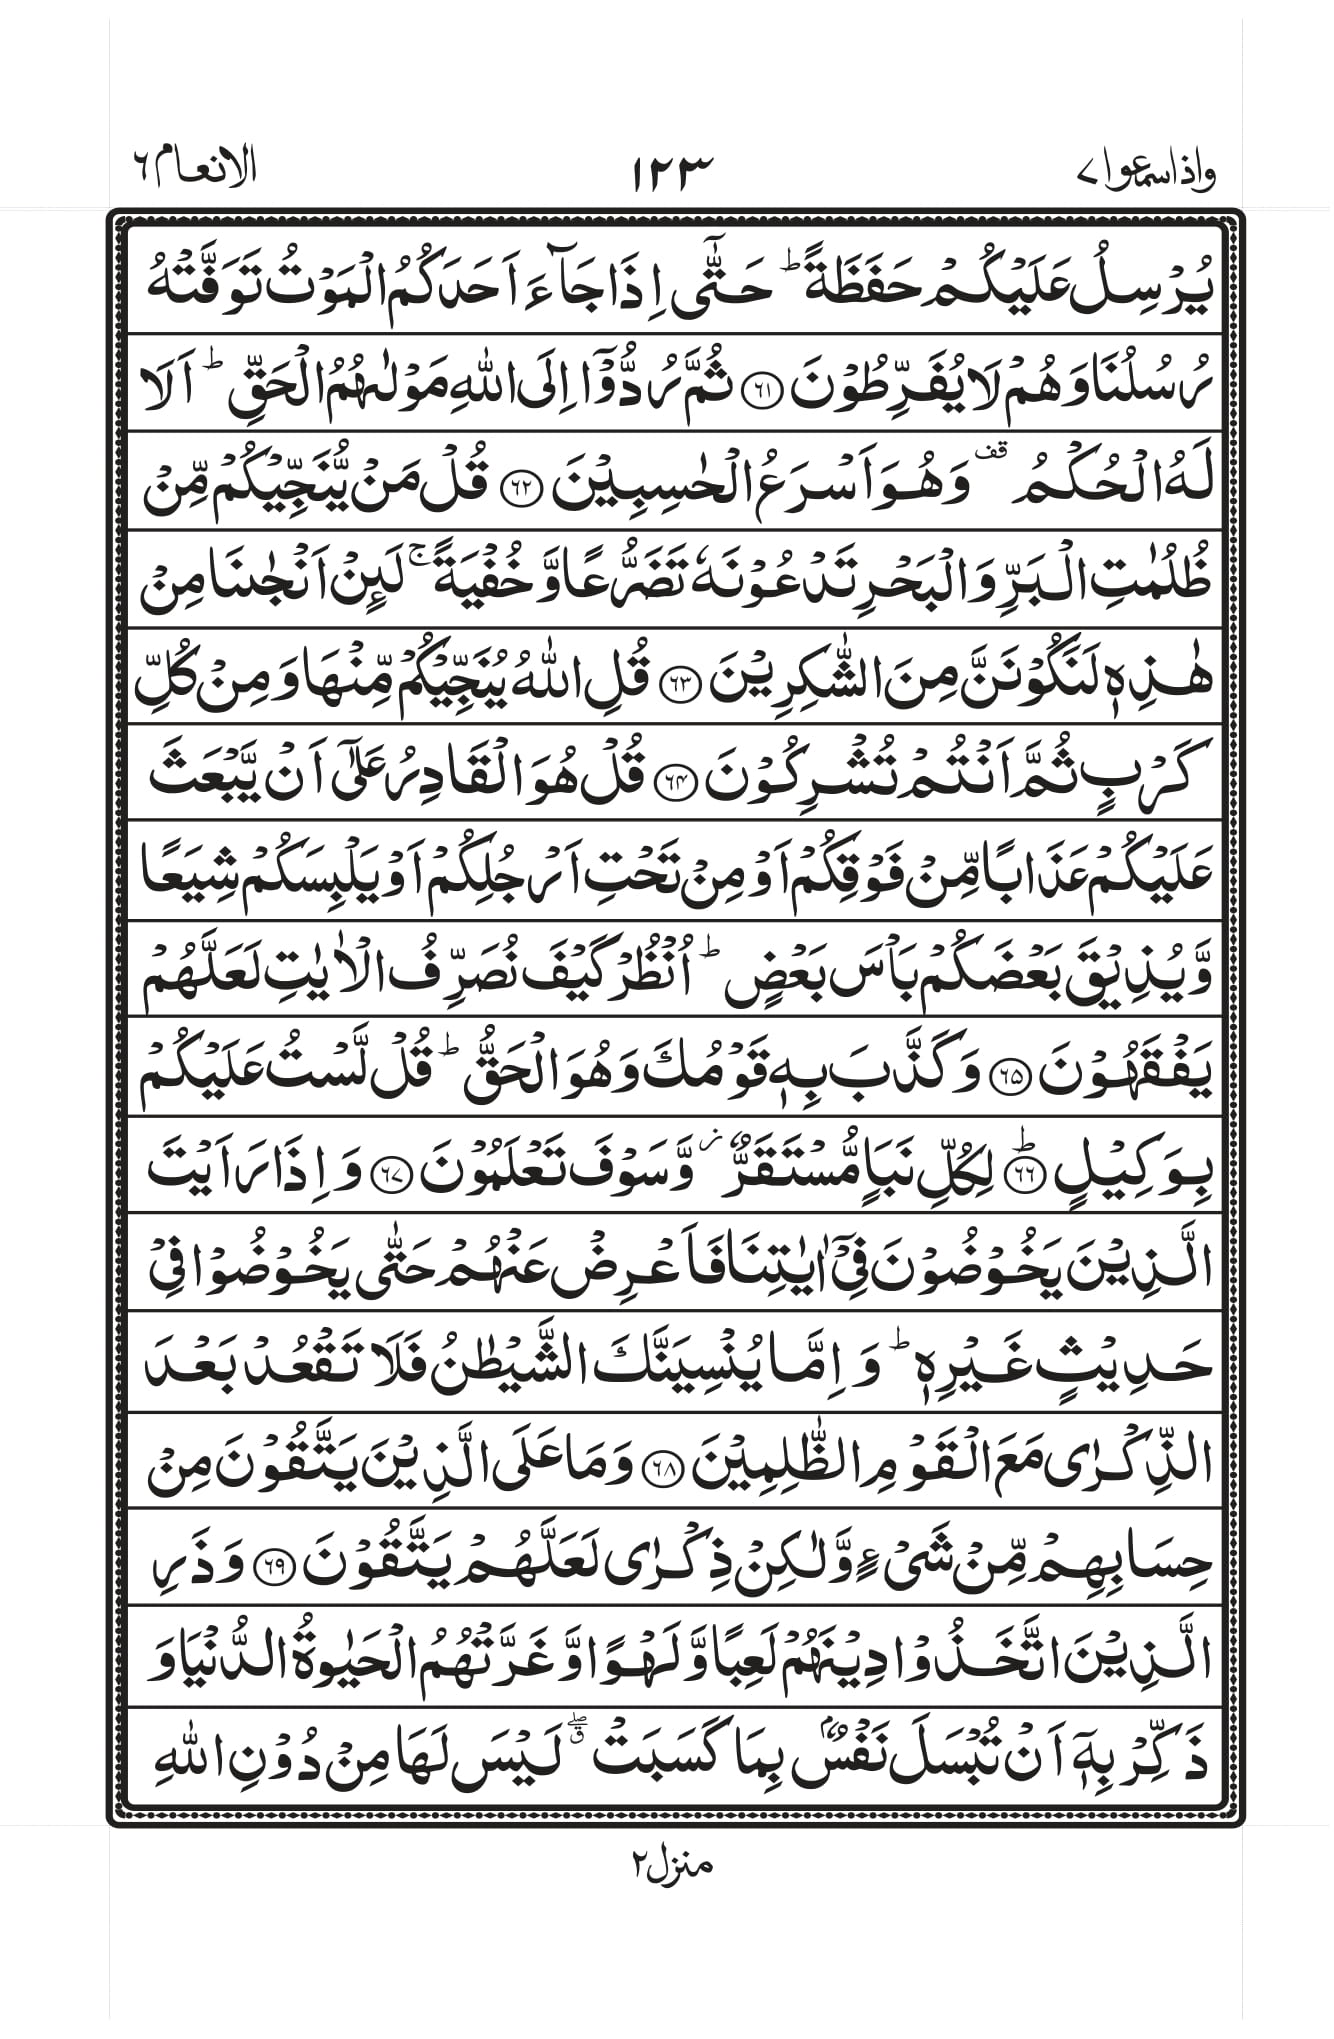 واذاسمعوا ۷
۱۲۳
الانعام ۶
يُرْسِلُ عَلَيْكُمْ حَفَظَةً ؕ حَتّٰۤى اِذَا جَآءَ اَحَدَكُمُ الْمَوْتُ تَوَفَّتْهُ
رُسُلُنَا وَهُمْ لَا يُفَرِّطُوْنَ ﴿۶۱﴾ ثُمَّ رُدُّوْۤا اِلَى اللّٰهِ مَوْلٰىهُمُ الْحَقِّ ؕ اَلَا
لَهُ الْحُكْمُ ࣞ وَهُوَ اَسْرَعُ الْحٰسِبِيْنَ ﴿۶۲﴾ قُلْ مَنْ يُّنَجِّيْكُمْ مِّنْ
ظُلُمٰتِ الْبَرِّ وَالْبَحْرِ تَدْعُوْنَهٗ تَضَرُّعًا وَّخُفْيَةً ۚ لَئِنْ اَنْجٰىنَا مِنْ
هٰذِهٖ لَنَكُوْنَنَّ مِنَ الشّٰكِرِيْنَ ﴿۶۳﴾ قُلِ اللّٰهُ يُنَجِّيْكُمْ مِّنْهَا وَمِنْ كُلِّ
كَرْبٍ ثُمَّ اَنْتُمْ تُشْرِكُوْنَ ﴿۶۴﴾ قُلْ هُوَ الْقَادِرُ عَلٰۤى اَنْ يَّبْعَثَ
عَلَيْكُمْ عَذَابًا مِّنْ فَوْقِكُمْ اَوْ مِنْ تَحْتِ اَرْجُلِكُمْ اَوْ يَلْبِسَكُمْ شِيَعًا
وَّيُذِيْقَ بَعْضَكُمْ بَاْسَ بَعْضٍ ؕ اُنْظُرْ كَيْفَ نُصَرِّفُ الْاٰيٰتِ لَعَلَّهُمْ
يَفْقَهُوْنَ ﴿۶۵﴾ وَكَذَّبَ بِهٖ قَوْمُكَ وَهُوَ الْحَقُّ ؕ قُلْ لَّسْتُ عَلَيْكُمْ
بِوَكِيْلٍ ﴿۶۶﴾ؕ لِكُلِّ نَبَاٍ مُّسْتَقَرٌّ ؗ وَّسَوْفَ تَعْلَمُوْنَ ﴿۶۷﴾ وَاِذَا رَاَيْتَ
الَّذِيْنَ يَخُوْضُوْنَ فِيْۤ اٰيٰتِنَا فَاَعْرِضْ عَنْهُمْ حَتّٰى يَخُوْضُوْا فِيْ
حَدِيْثٍ غَيْرِهٖ ؕ وَاِمَّا يُنْسِيَنَّكَ الشَّيْطٰنُ فَلَا تَقْعُدْ بَعْدَ
الذِّكْرٰى مَعَ الْقَوْمِ الظّٰلِمِيْنَ ﴿۶۸﴾ وَمَا عَلَى الَّذِيْنَ يَتَّقُوْنَ مِنْ
حِسَابِهِمْ مِّنْ شَيْءٍ وَّلٰكِنْ ذِكْرٰى لَعَلَّهُمْ يَتَّقُوْنَ ﴿۶۹﴾ وَذَرِ
الَّذِيْنَ اتَّخَذُوْا دِيْنَهُمْ لَعِبًا وَّلَهْوًا وَّغَرَّتْهُمُ الْحَيٰوةُ الدُّنْيَا وَ
ذَكِّرْ بِهٖۤ اَنْ تُبْسَلَ نَفْسٌۢ بِمَا كَسَبَتْ ۖۗ لَيْسَ لَهَا مِنْ دُوْنِ اللّٰهِ
منزل۲